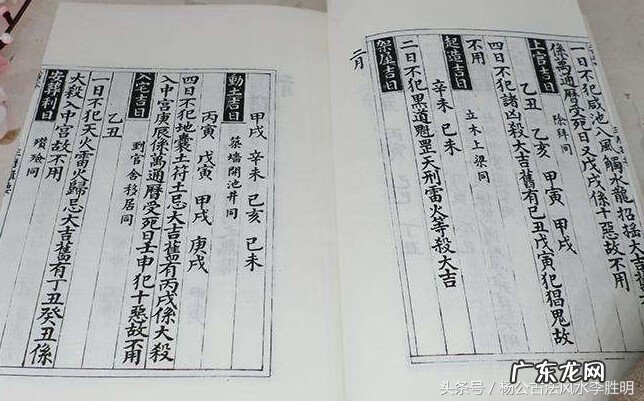 一日不犯咸池八風觸水龍招搖大吉
係萬通曆受死日又戊戌係十惡故不用
上官吉日 除拜同
乙丑 乙亥 甲寅 甲戌
四日不犯諸凶殺大吉舊有己丑戊寅犯猖鬼故
不用
起造吉日 立木上梁同
辛未 己未
二日不犯黑道魁罡天刑雷火等殺大吉
架屋吉日
二月
甲戌 辛未 己亥 己未
動土吉日 築墻開池井同
丙寅 戊寅 甲戌 庚戌
四日不犯地囊土符土忌大吉舊有丙戌係大殺
入中宮庚辰係萬通曆受死日壬申犯十惡故不用
入宅吉日 到官舍移居同
乙丑
一日不犯天火雷火歸忌大吉舊有丁丑癸丑係
大殺入中宮故不用
安葬利日 攢殮同
广东龙网
头条号／杨公古法风水李胜明